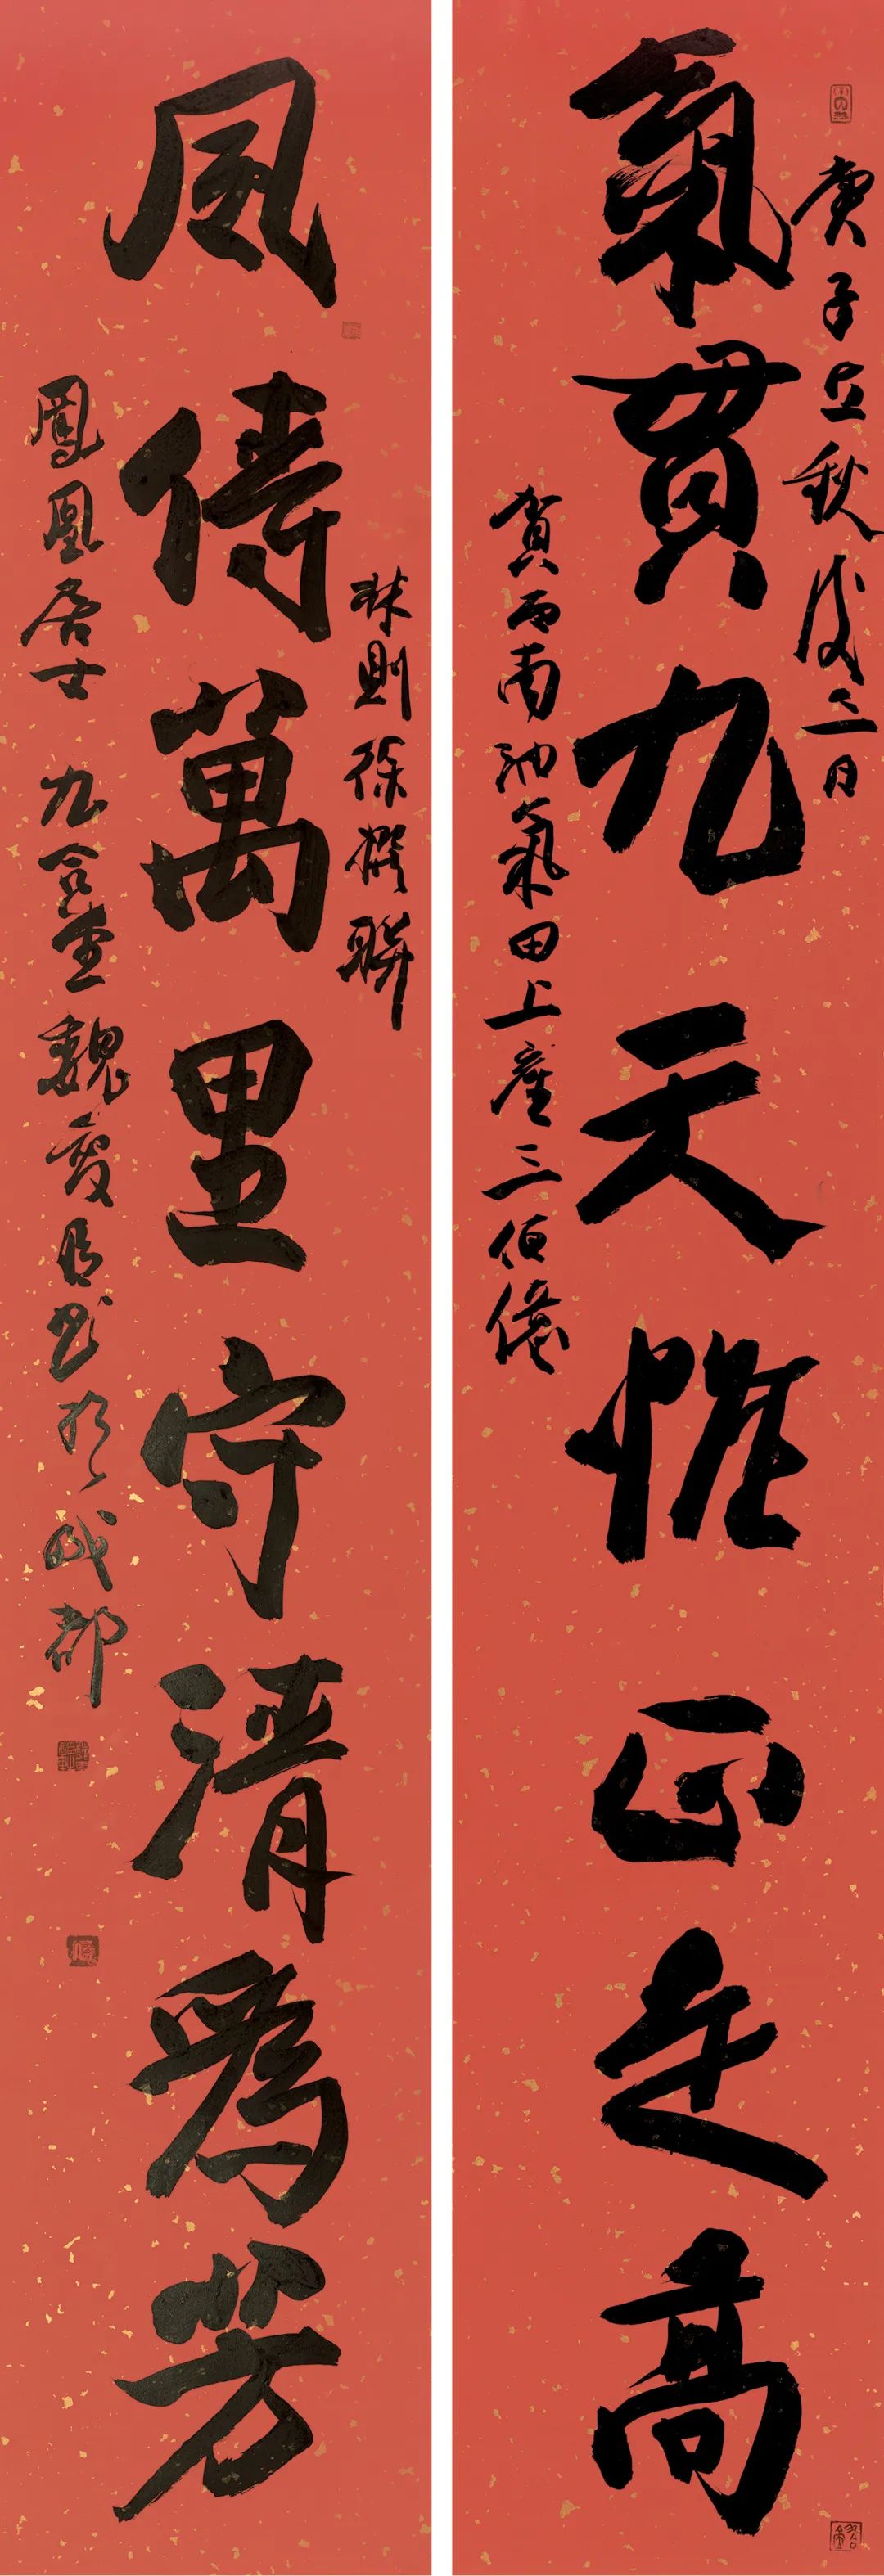 庚子立秋後三日
氣貫九天惟正是高
賀西南油氣田上產三佰億
林則徐撰聯
風傳萬里守清為芳
鳳凰居士 九合堂 魏 書於成都